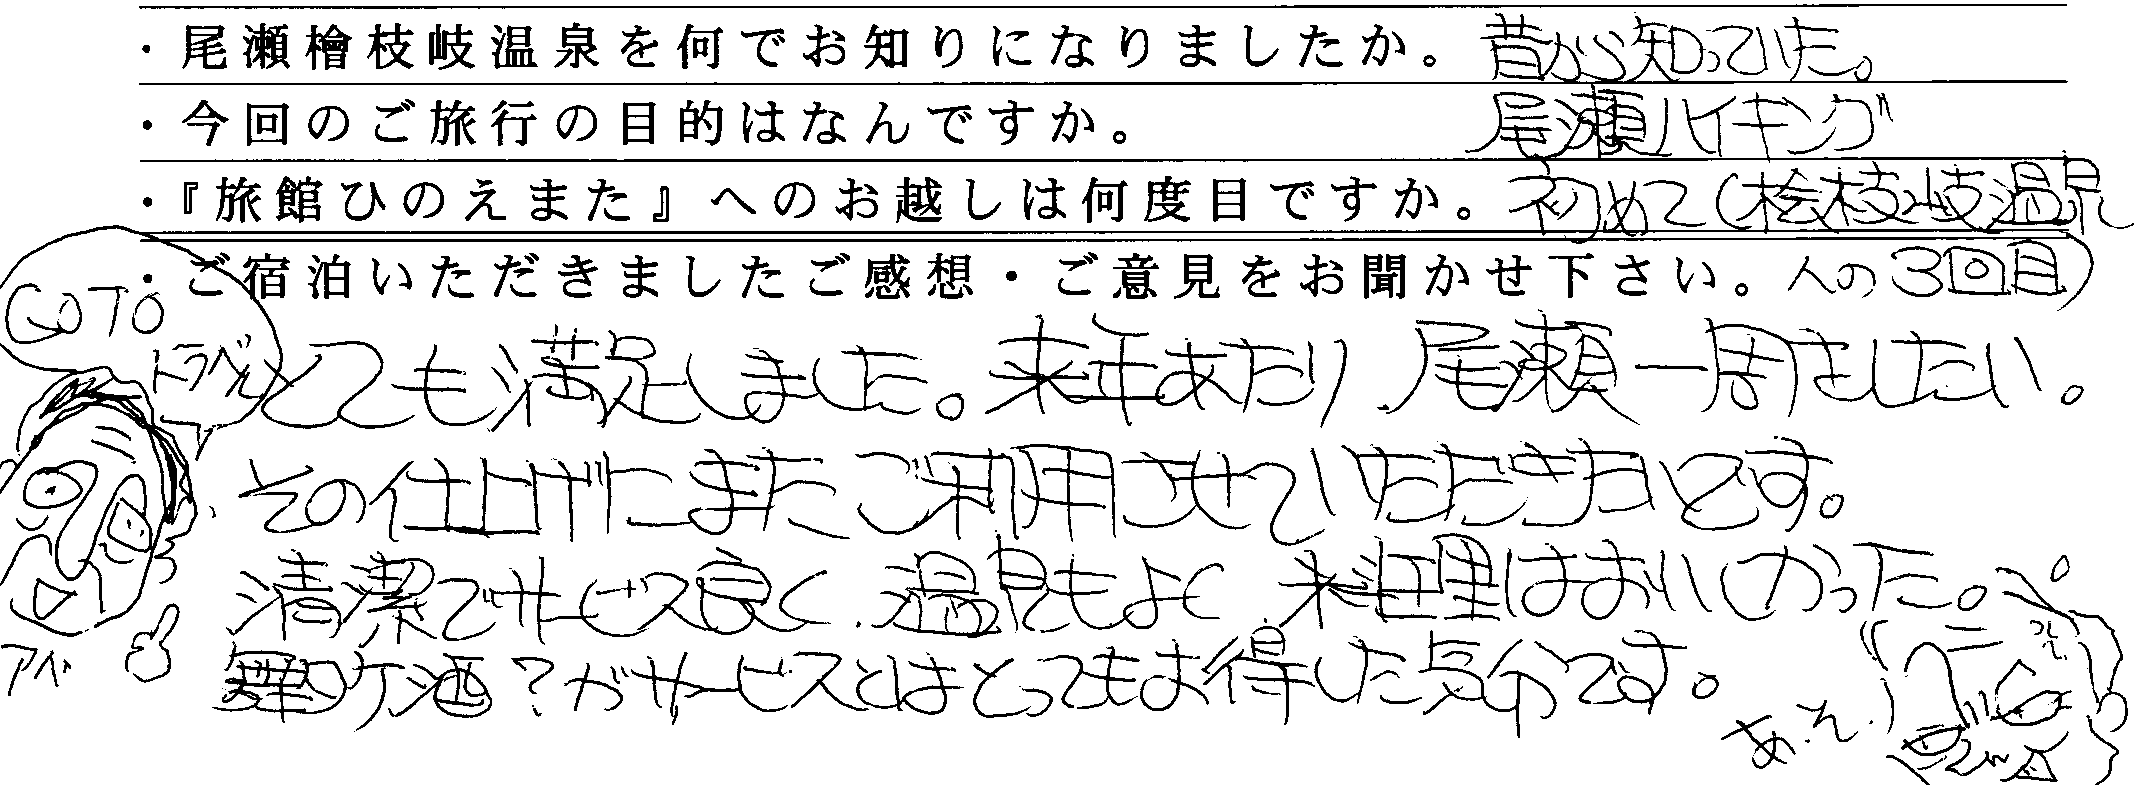 ・尾瀬檜枝岐温泉を何でお知りになりましたか。 昔から知っていた。
・今回のご旅行の目的はなんですか。 尾瀬ハイキング
・『旅館ひのえまた』へのお越しは何度目ですか。 初めて(桧枝岐温泉
・ご宿泊いただきましたご感想・ご意見をお聞かせ下さい。 への3回目)
GOTO
トラベル
とても満足しました。来年あたり、尾瀬一周をしたい。
その仕上げにまたご利用させていただきたいです。
清潔でサービス良く、温泉もよく 料理はおいしかった。
ケ酒?がサービスとはとってもお得した気分です。
アベ